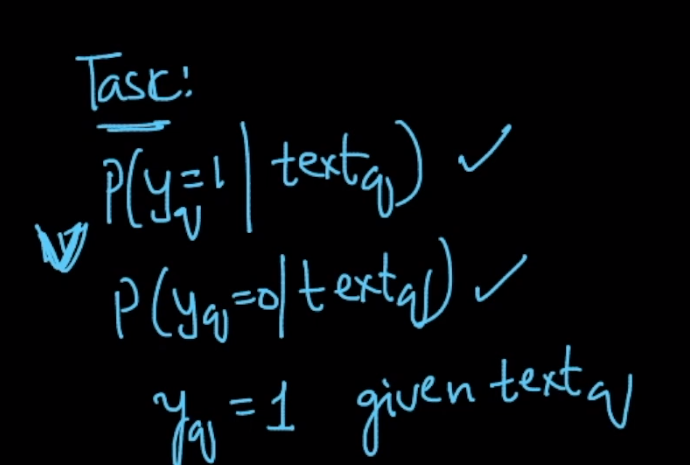 Task:
P(y_q=1 | text_q) ✓
P(y_q=0 | text_q) ✓
y_q = 1 given text_q